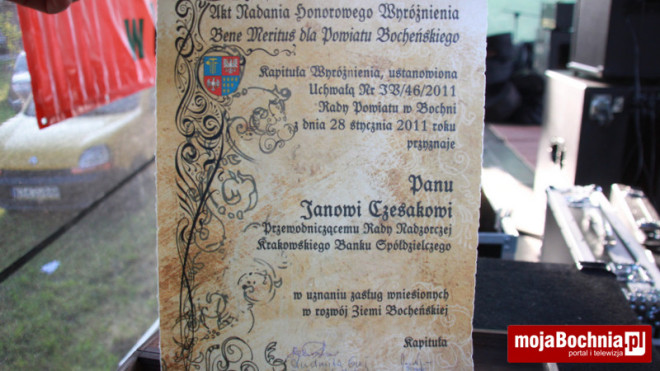 Akt Nadania Honorowego Wyróżnienia
Bene Meritus dla Powiatu Bocheńskiego
Kapituła Wyróżnienia, ustanowiona
Uchwałą Nr IV/46/2011
Rady Powiatu w Bochni
z dnia 28 stycznia 2011 roku
przyznaje
Panu
Janowi Czesakowi
Przewodniczącemu Rady Nadzorczej
Krakowskiego Banku Spółdzielczego
w uznaniu zasług wniesionych
w rozwój Ziemi Bocheńskiej
Kapituła
mojaBochnia.pl
portal i telewizja